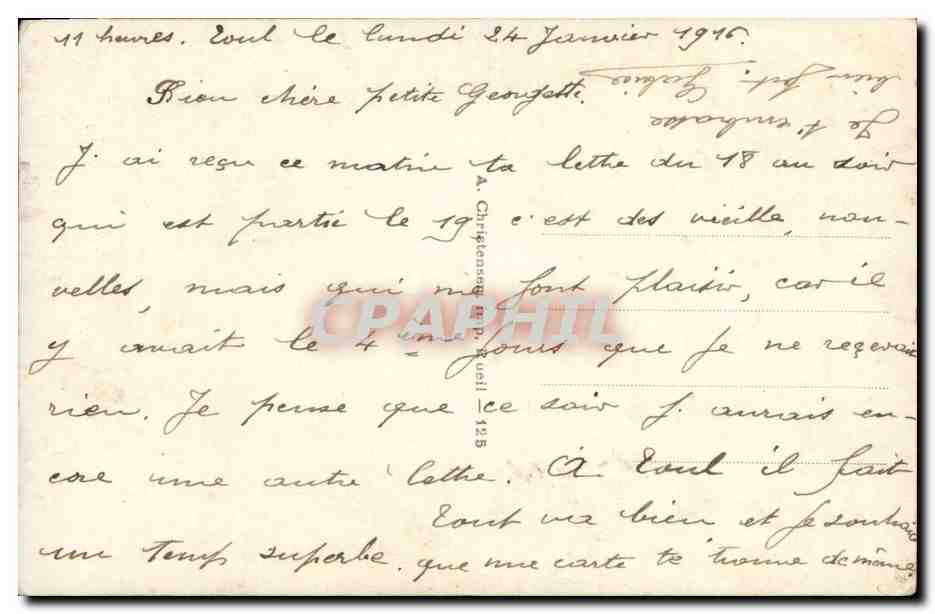 11 heures. Toul le lundi 24 Janvier 1916.
Bien chère petite Georgette.
J. ai reçu ce matin ta lettre du 18 au soir
qui est partie le 19 c'est des vieille nou-
velles, mais qui me font plaisir, car il
y avait le 4ème Jours que Je ne reçevait
rien. Je pense que ce soir J. aurais en-
core une autre lettre. A Toul il fait
un temp superbe.
Tout va bien et Je souhait
que me carte te trouve de même.
Je t'embrasse
bien fort.
A. Christensen Imp. Rueil - 125
CPAPHIL